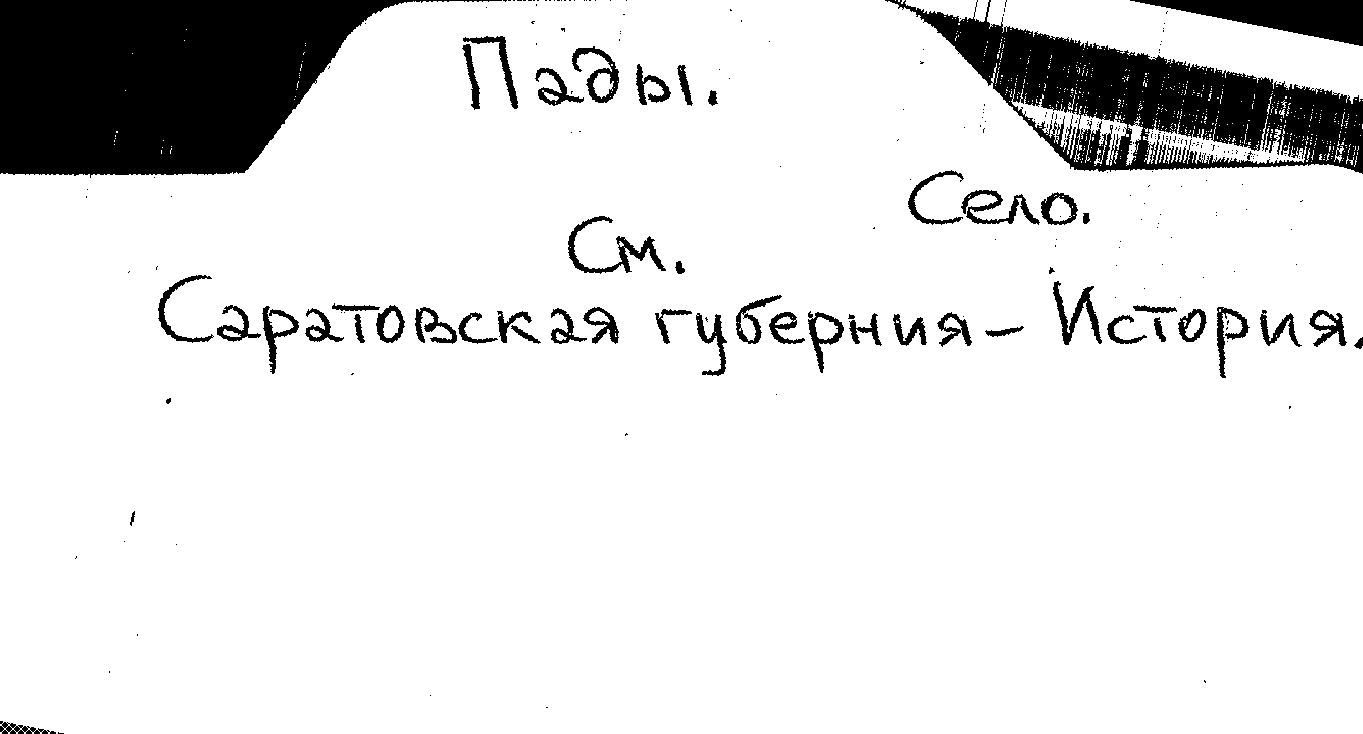 Пады.
Село.
См.
Саратовская губерния – История.